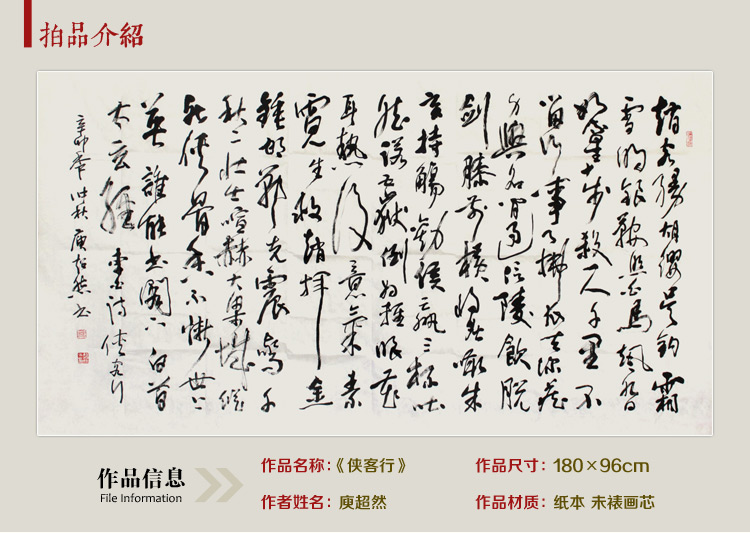 拍品介紹
趙客縵胡纓吳鈎霜
雪明銀鞍照白馬颯沓
如流星十步殺一人千里不
留行事了拂衣去深藏
身與名閒過信陵飲脫
劍膝前橫將炙啖朱
亥持觴勸侯嬴三杯吐
然諾五嶽倒為輕眼花
耳熱後意氣素
霓生救趙揮金
錘邯鄲先震驚千
秋二壯士喧赫大梁城縱
死俠骨香不慚世上
英誰能書閣下白首
太玄經 李白詩俠客行
辛卯年仲秋庾超然書
作品信息
File Information
作品名称：《侠客行》
作品尺寸：180×96cm
作者姓名：庾超然
作品材质：纸本 未裱画芯